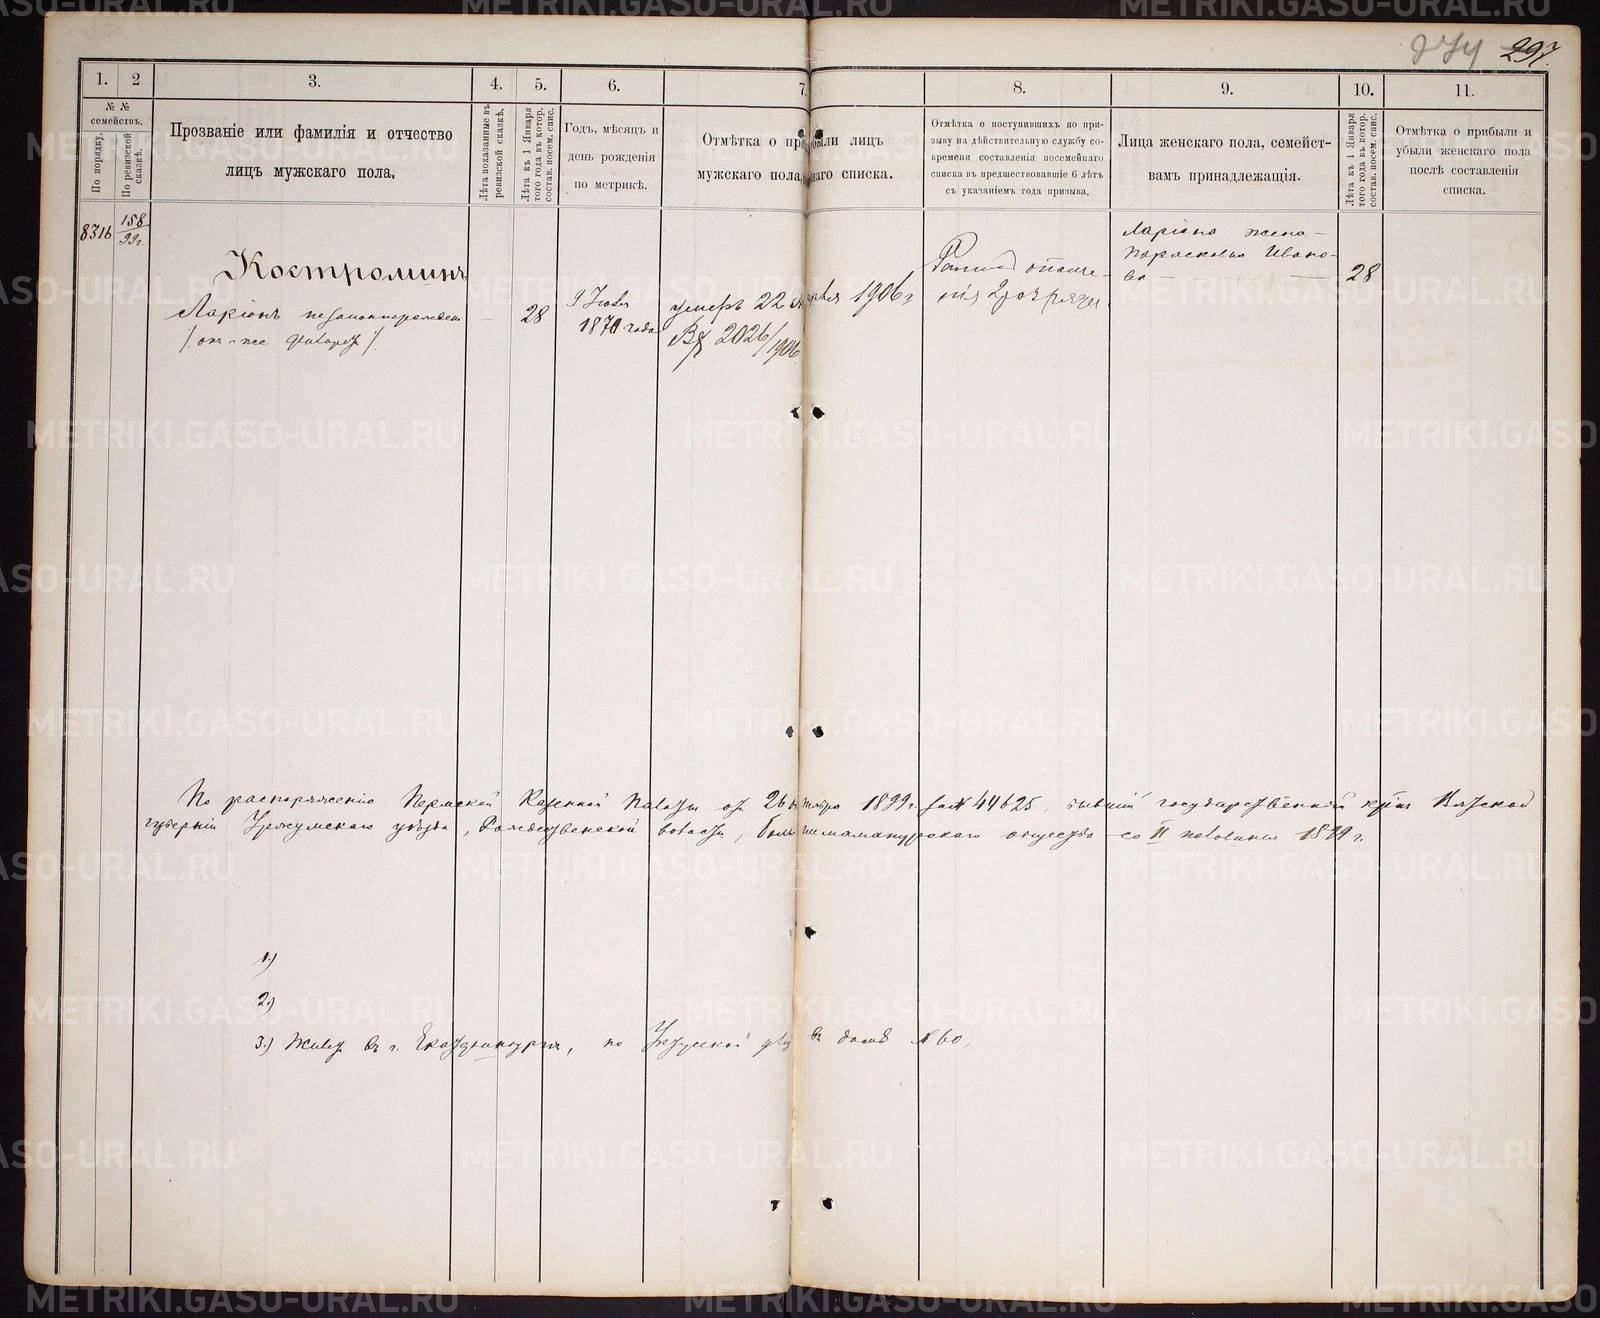 274 297.
1. 2 3. 4. 5. 6. 7. 8. 9. 10. 11.
№ №
семействъ.
По порядку.
По ревизской
сказкѣ.
Прозваніе или фамилія и отчество
лицъ мужскаго пола.
Лѣта показанныя въ
ревизской сказкѣ.
Лѣта къ 1 Января
того года въ котор.
состав. посем. спис.
Годъ, мѣсяцъ и
день рожденія
по метрикѣ.
Отмѣтка о при были лицъ
мужскаго пола, ваго списка.
Отмѣтка о поступившихъ по при-
зыву на дѣйствительную службу со-
времени составленія посемейнаго
списка въ предшествовавшіе 6 лѣтъ
съ указаніемъ года призыва.
Лица женскаго пола, семейст-
вамъ принадлежащія.
Лѣта къ 1 Января
того года въ котор.
состав. посем. спис.
Отмѣтка о прибыли и
убыли женскаго пола
послѣ составленія
списка.
8316 158/99 г.
Костроминъ
Ларіонъ незаконнорожден
/онъ-же /
28
9 Іюня
1870 года
умеръ 22 Апрѣля 1906 г
Вх 2026/1906.
Ратник ополче-
нія 2 разряда
Ларіона жена-
Парасковья Ивано-
ва 28
По распоряженію Пермской Казенной Палаты от 26 октября 1899 г. за № 44625, бывшій государственный крѣс Вятской
губерніи Уржумскаго уѣзда, Рождественской волости, общества со II половины 1899 г.
1)
2)
3) Живет въ г. Екатеринбургѣ, по Уктусской ул въ домѣ № 60.
METRIKI.GASO-URAL.RU